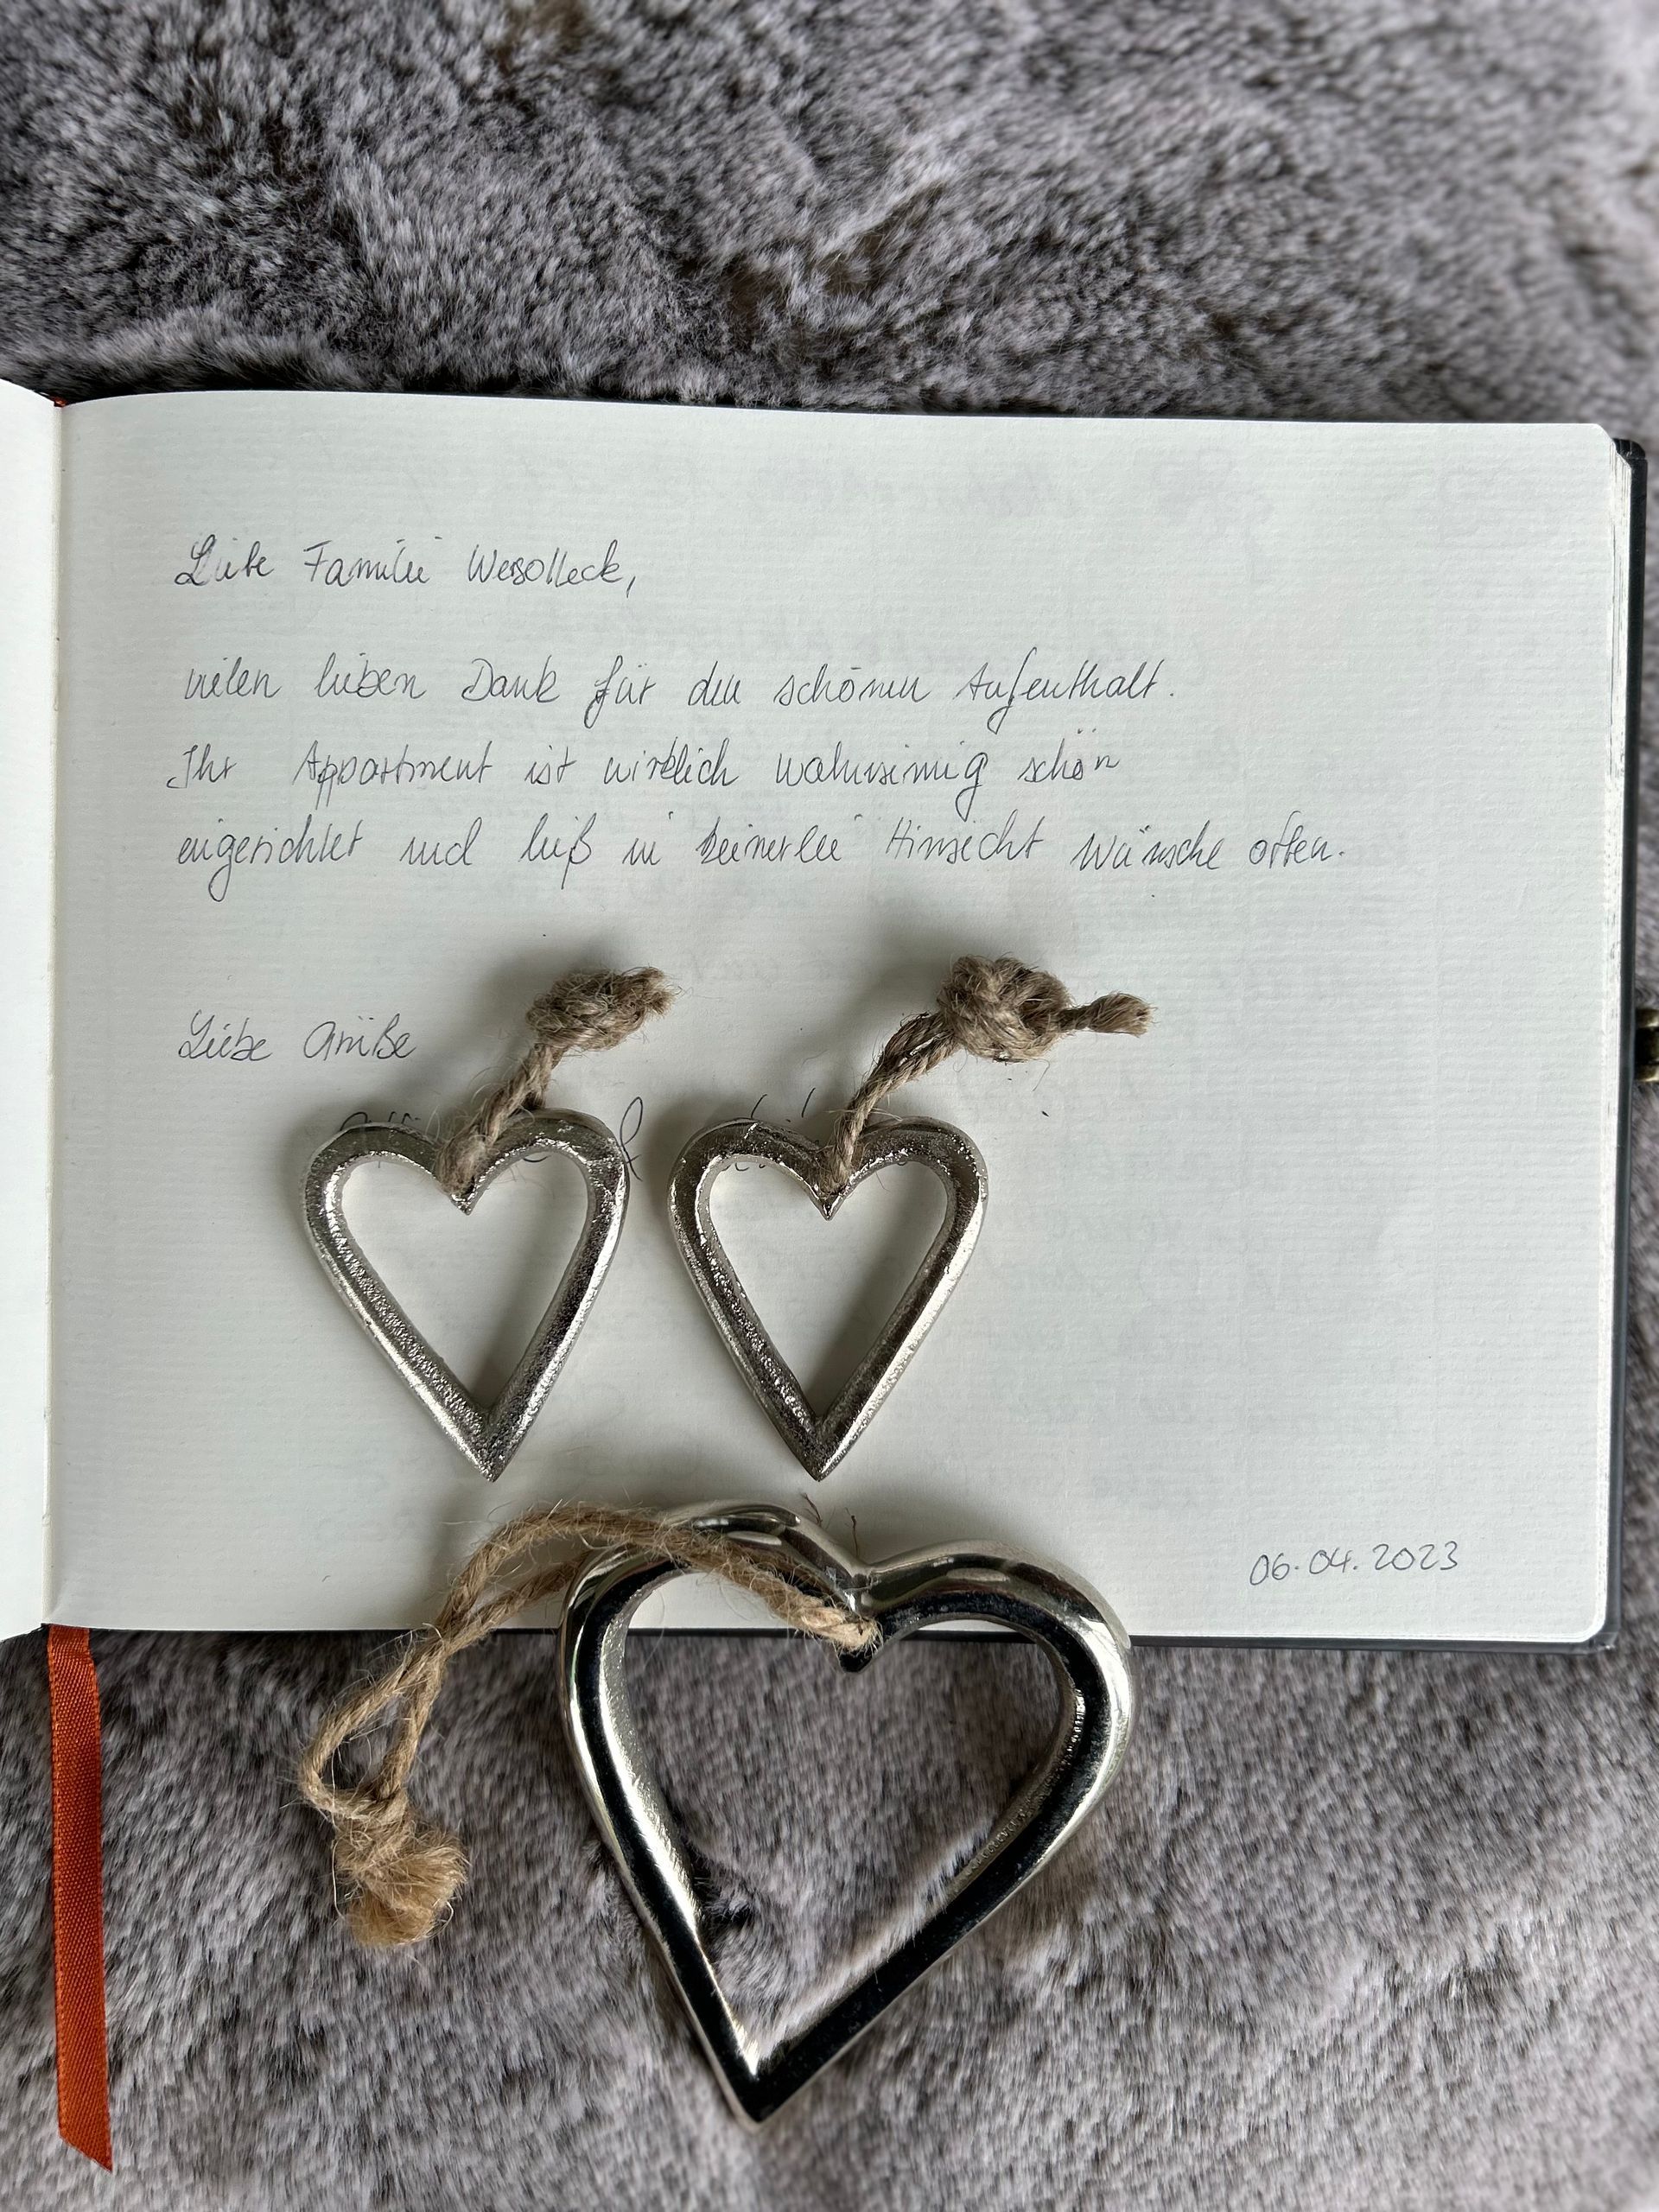 Liebe Familie Wesolleck,
vielen lieben Dank für den schönen Aufenthalt.
Ihr Appartment ist wirklich wahnsinnig schön
eingerichtet und ließ in keinerlei Hinsicht Wünsche offen.
Liebe Grüße
06.04.2023